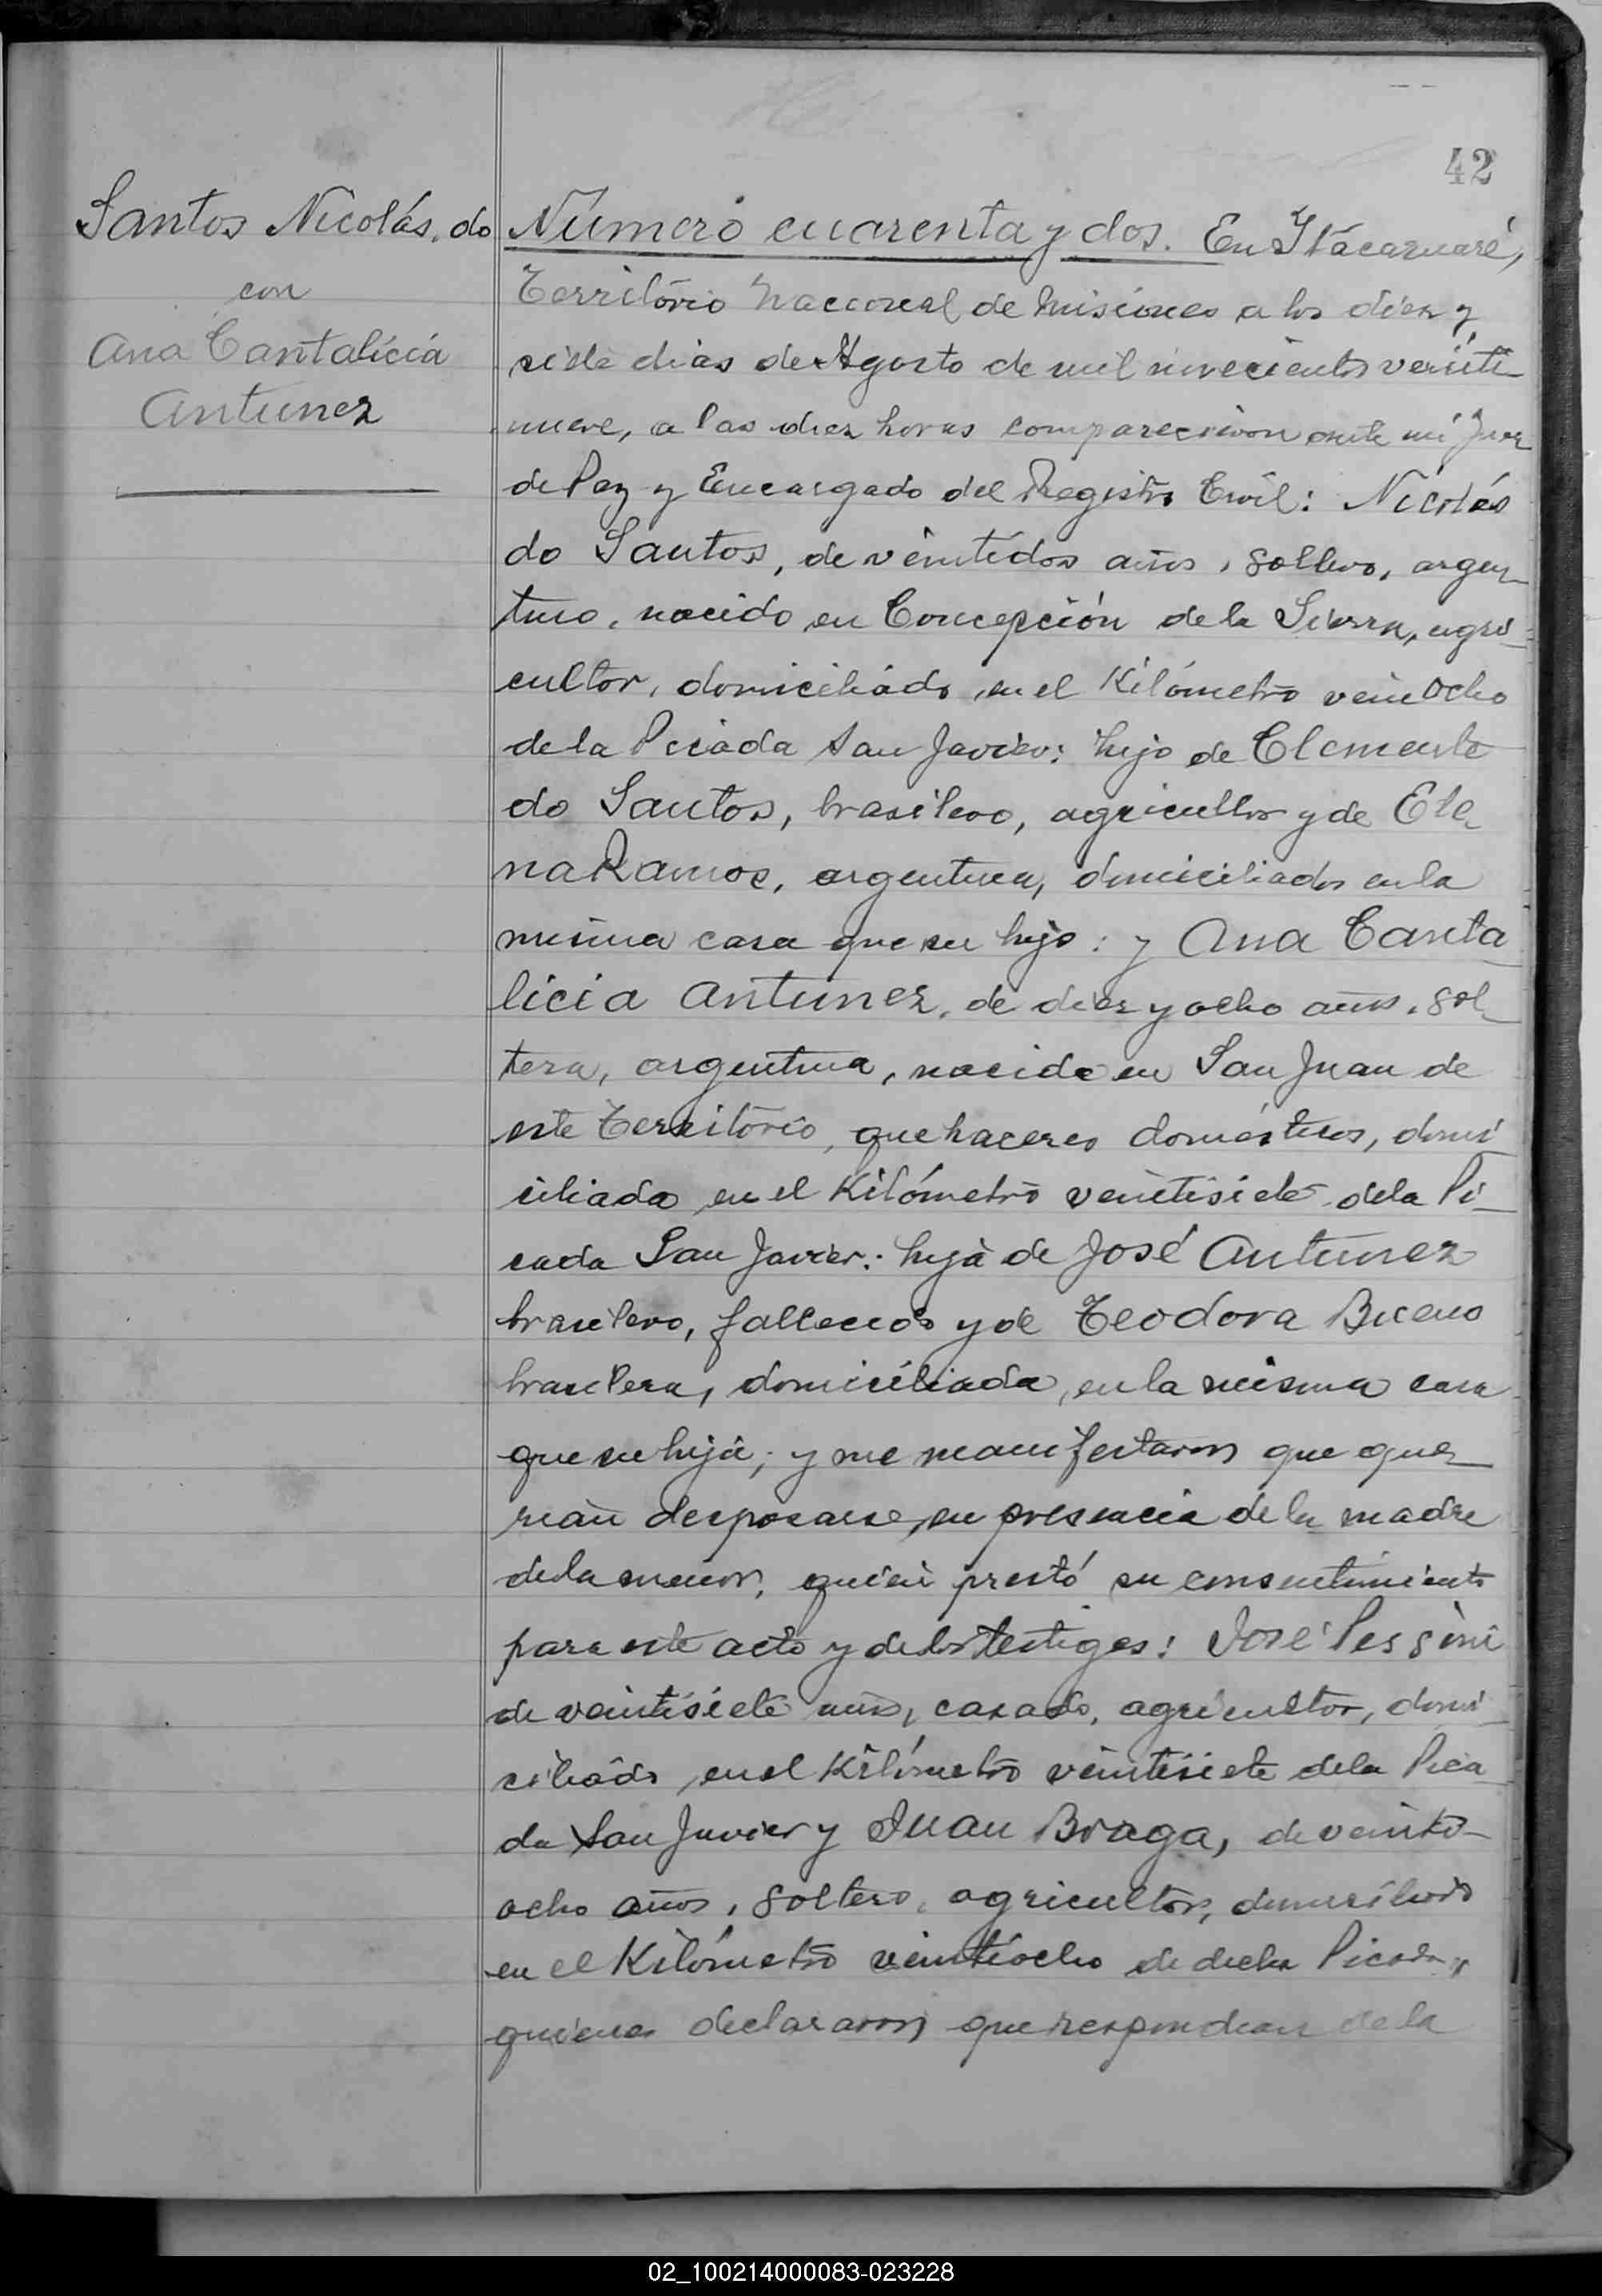 42
Santos Nicolás, do
con
Ana Cantalicia
Antunez
Número cuarenta y dos. En Itacaruaré,
Território Nacional de Misiones a los diez y
siete dias de Agosto de mil novecientos veinti-
nueve, a las diez horas comparecieron ante mi Juez
de Paz y Encargado del Registro Civil: Nicolás
do Santos, de veintidos años, soltero, argen-
tino, nacido en Concepción de la Sierra, agri-
cultor, domiciliado en el Kilómetro veinocho
de la Picada San Javier: hijo de Clemente
do Santos, brasilero, agricultor y de Ele-
na Ramos, argentina, domiciliados en la
misma casa que su hijo: y Ana Canta-
licia Antunez, de diez y ocho años, sol-
tera, argentina, nacida en San Juan de
este Território, quehaceres domésticos, domi-
ciliada en el Kilómetro veintisiete de la Pi-
cada San Javier: hija de José Antunez
brasilero, fallecido y de Teodora Bueno
brasilera, domiciliada en la misma casa
que su hija; y me manifestaron que que-
rian desposarse, en presencia de la madre
de la menor, quien prestó su consentimiento
para este acto y de los testigos: José Pessini
de veintisiete años, casado, agricultor, domi-
ciliado en el Kilómetro veintisiete de la Pica-
da San Javier y Juan Braga, de veinti-
ocho años, soltero, agricultor, domiciliado
en el Kilómetro veintiocho de dicha Picada,
quienes declararon que respondian de la
02_100214000083-023228